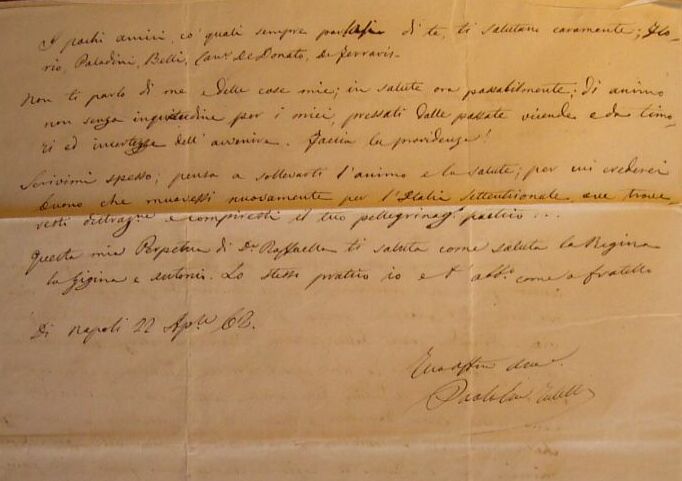 I pochi amici, co' quali sempre parlasi di te, ti salutano caramente; Flo-
rio, Paladini, Belli, Can.º De Donato, De Ferraris.
Non ti parlo di me e delle cose mie; in salute ora passabilmente; di animo
non senza inquietudine per i miei, pressati dalle passate vicende e da timo-
ri ed incertezze dell'avvenire. Faccia la providenza!
Scrivimi spesso; pensa a sollevarti l'animo e la salute; per cui crederei
buono che muovessi nuovamente per l'Italia Settentrionale ove trove
resti distrazione e compiresti il tuo pellegrinag. poetico...
Questa mia Perpetua di Dª Raffaella ti saluta come saluta la Regina
la Gigina e Antonio. Lo stesso pratico io e t'abbº come a fratello
Di Napoli 22 Aple 62.